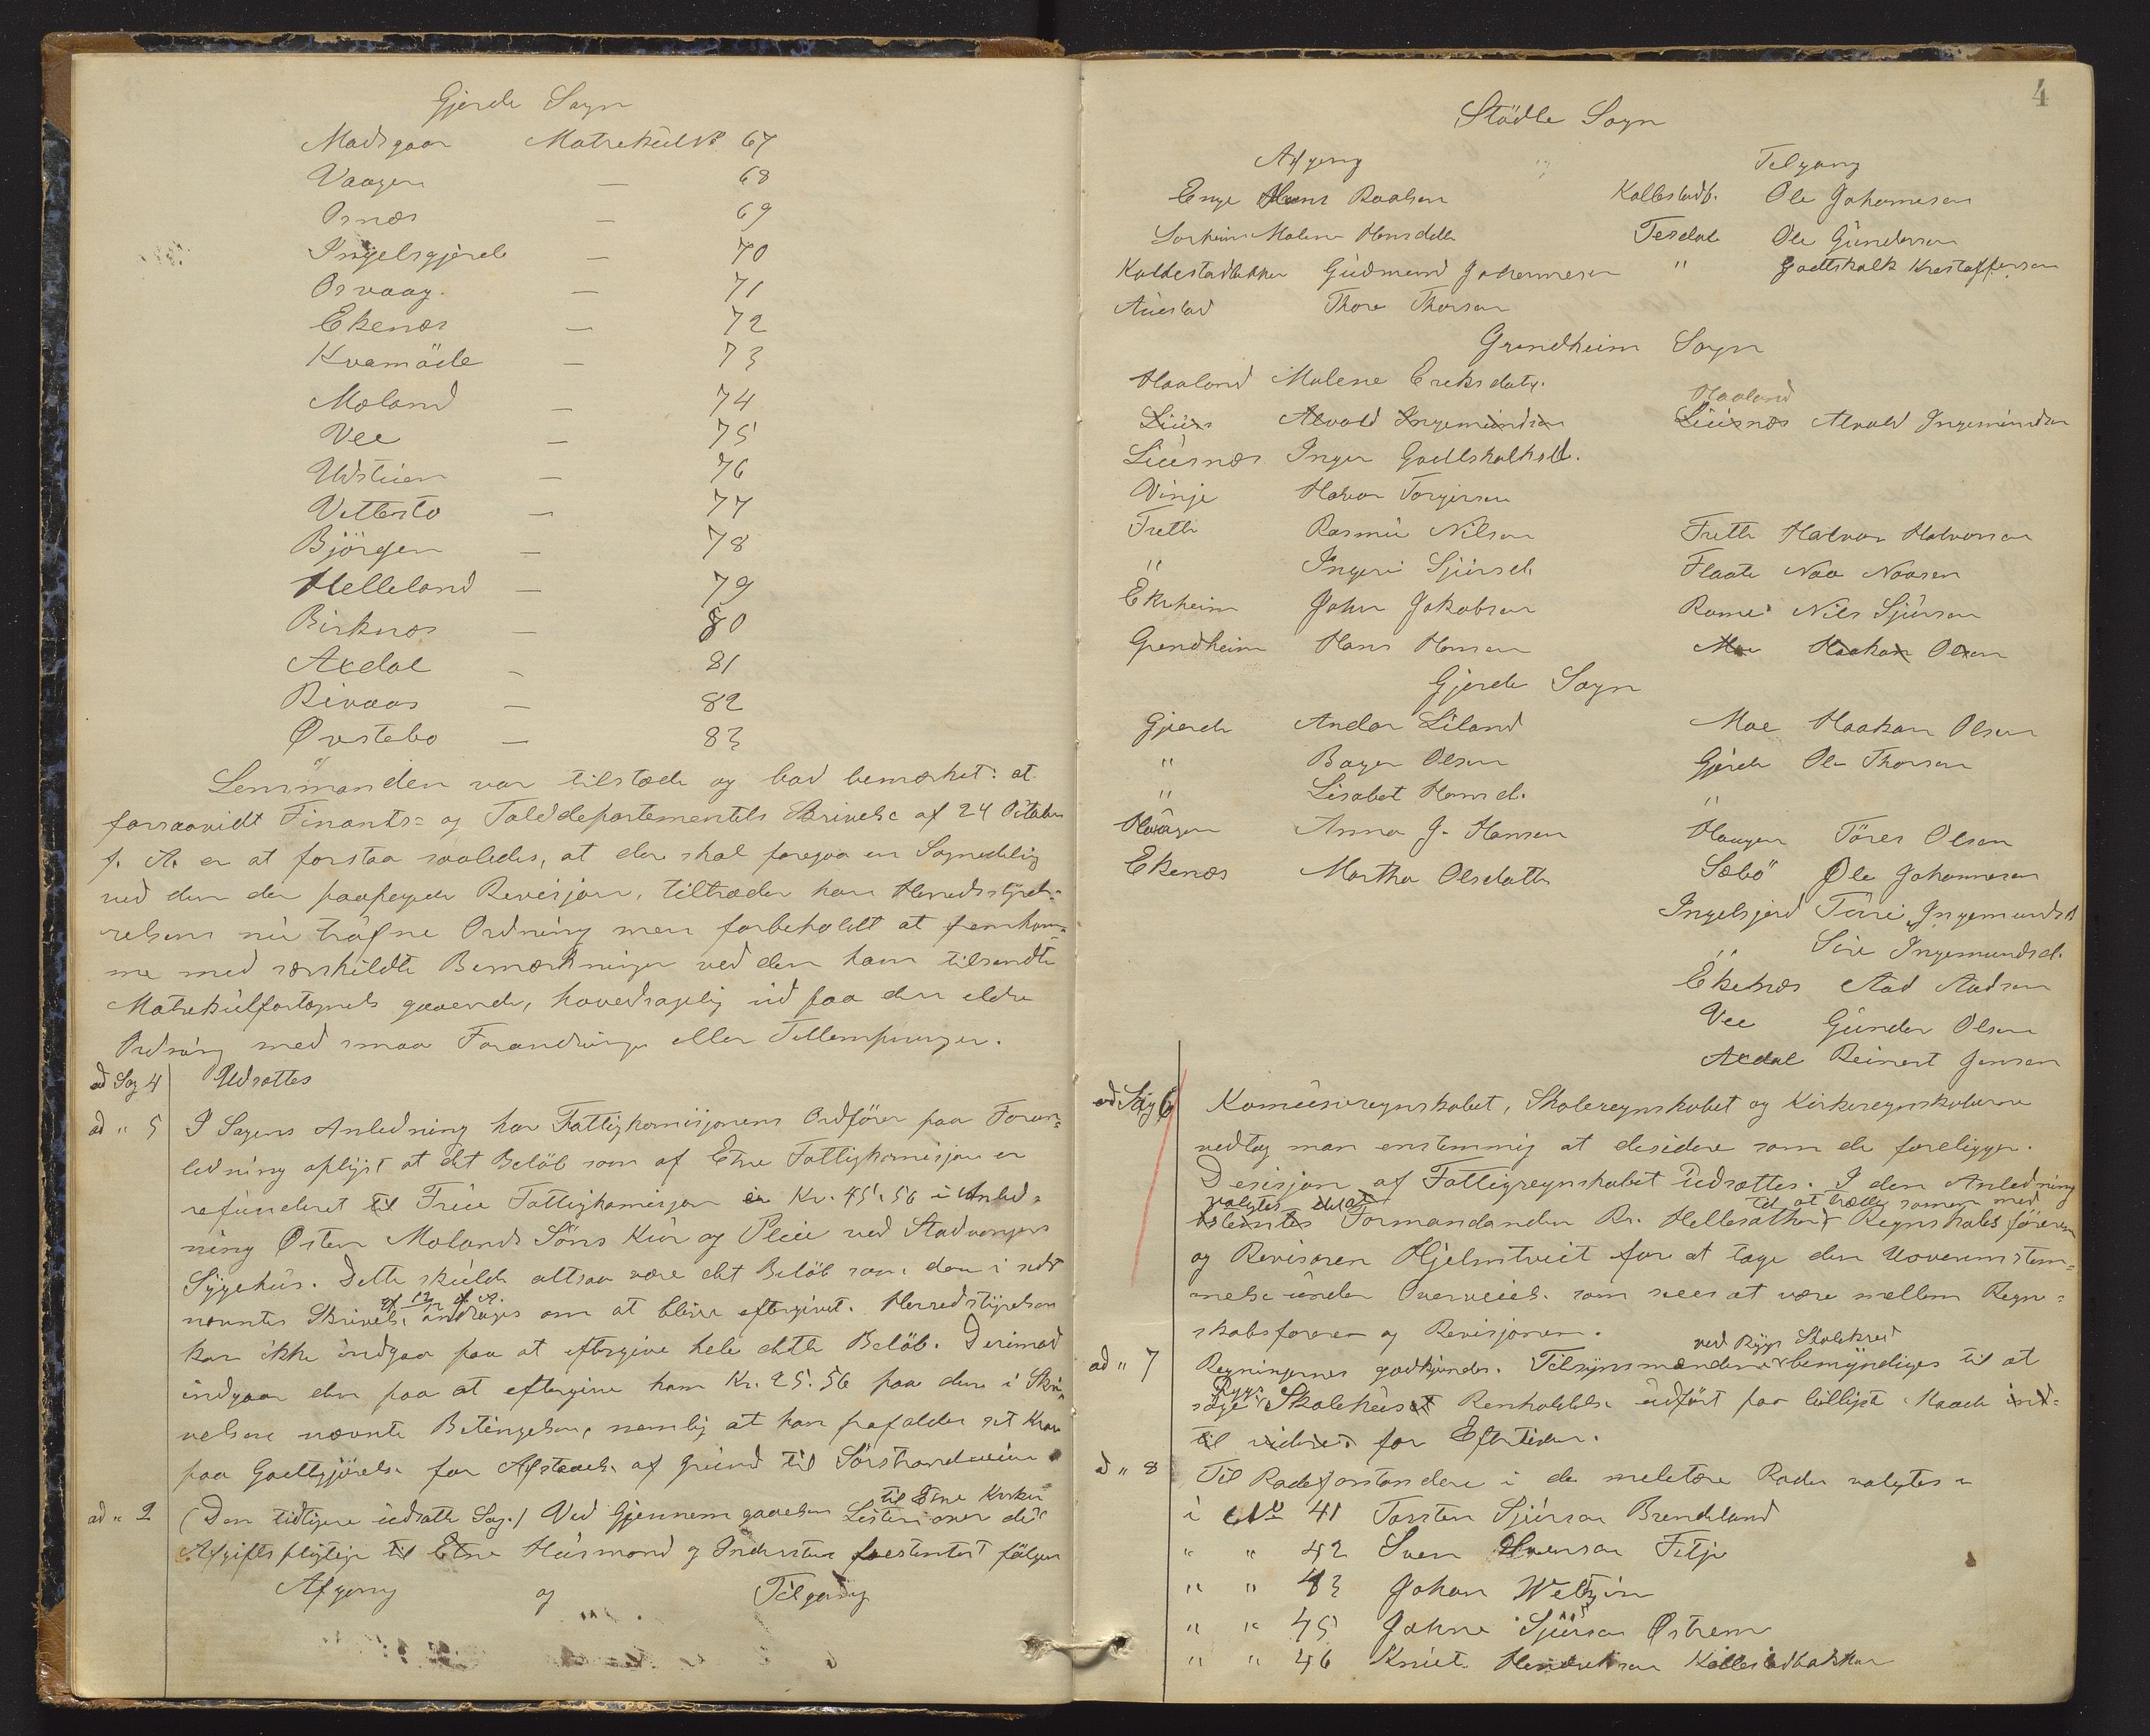 Gjerde Sogn
Madsgaar Matrekül № 67
Vaagen — 68
Osnæs — 69
Ingelsgjerde — 70
Osvaag — 71
Ekenæs — 72
Kvamöde — 73
Moland — 74
Vee — 75
Udstüen — 76
Vettestø — 77
Björgen — 78
Helleland — 79
Birknæs — 80
Axdal — 81
Rivaas — 82
Øvstebø — 83
Lensmanden var tilstæde og bad bemærket: at
forsaavidt Finants= og Tolddepartementets Skrivelse af 24 Oktober
f. A. er at forstaa saaledes, at der skal foregaa en Sognedeling
ved den der paapegede Revisjon, tiltræder han Herredsstyrel=
relsens nü trüfne Ordning men forbeholdt at fremkom=
me med særskildte Bemærkninger ved den ham tilsendte
Matrekülfortegnels gaaende, hovedsagelig üd paa den eldre
Ordning med smaa Forandringer eller Tillempninger.
ad Sag 4 Udsattes
ad " 5 I Sagens Anledning har Fattigkomisjonens Ordförer paa Foran=
ledning oplyst at det Belöb som af Etne Fattigkomisjon er
refünderet til Freie Fattigkomisjon er Kr. 45.56 i Anled=
ning Østen Molands Söns Kür og Pleie ved Stadvangers
Sygehüs. Dette skülde altsaa være det Belöb som den i sidst
nævnte Skrivelse af 12 andrages om at blive eftergivet. Herredstyrelsen
kan ikke indgaa paa at eftergive hele dette Belöb. Derimod
indgaar den paa at eftergive ham Kr. 25.56 paa den i Skri=
velsen nævnte Betingelse, nemlig at han frafalder sit Krav
paa Godtgjörelse for Afstaaelse af Gründ til Sörstrandveien
ad " 2 (Den tidligere üdsatte Sag.) Ved Gjennemgaaelsen Listerne over de til Etne Kirker
Afgiftspligtige til Etne Hüsmænd og Inderster bestemtes fölgen
Afgang og Tilgang
4
Stödle Sogn
Afgang Tilgang
Enge Hans Paalsen Kallestadb. Ole Johannesen
Sørheim Malene Hansdatter Tesdal Ole Gündersen
Kaldestadbakken Güdmünd Johannesen " Gottskalk Kristoffersen
Aüestad Thore Thorsen
Grindheim Sogn
Haaland Malene Eriksdatr.
Haaland
Liüs Alvald Ingemündsen Liüsnæs Alvald Ingemündsen
Liüsnæs Inger Godtskalksd.
Vinje Halvor Torgiersen
Frette Rasmüs Nilsen Frette Halvor Halvorsen
" Ingeri Sjürsd. Flaate Naa Naasen
Ekrheim John Jakobsen Rame Nils Sjürsen
Grindheim Hans Hansen Moe Haakon Olsen
Gjerde Sogn
Gjerde Andor Liland Moe Haakon Olsen
" Bager Olsen Gjerde Ole Thorsen
" Lisabet Hansd. "
Haagen Anna J. Hansen Haugen Töres Olsen
Ekenæs Martha Olsdatter Sæbö Ole Johannesen
Ingelsjerd Türi Ingemundsd
" Siri Ingemundsd.
Ekenæs Aad Aadsen
Vee Günder Olsen
Axdal Reinert Jensen
ad Sag 6 Komüneregnskabet, Skoleregnskabet og Kirkeregnskaberne
vedtog man enstemmig at desidere som de foreligger.
Desisjon af Fattigregnskabet üdsættes. I den Anledning
valgtes til at træde samen med
Formandanden Kr. Hellesather Regnskabsföreren
og Revisoren Hjelmtveit for at tage den Uoverenstem=
melse ünder Overveielse som sees at være mellem Regn=
skabsföreren og Revisjonen.
ad " 7 Regningerne godkjendes. Tilsynsmændene ved Rygs Skolekreds bemyndiges til at
Rygs
söge Skolehüset Renholdelse üdfört paa billigste Maade ind=
til videre for Eftertiden.
ad " 8 Til Rodeforstandere i de meletære Roder valgtes
i № 41 Torsten Sjürsen Brendeland
" " 42 Sven Svensen Fitje
" " 43 Johan Weltzin
" " 45 Johne Sjürsen Østrem
" " 46 Knüt Hendriksen Kallestadbakken